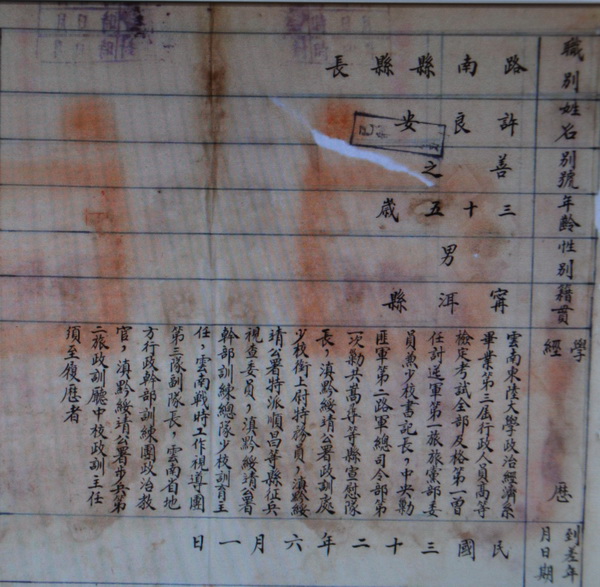 職別
路南縣縣長
姓名
許良安
別號
善之
年齡
三十五歲
性別
男
籍貫
甯洱縣
學經歷
雲南東陸大學政治經濟系
畢業第三屆行政人員高等
檢定考試全部及格第一曾
任討逆軍第一旅旅黨部委
員兼少校書記長，中央勦
匪軍第二路軍總司令部第
一次勦共高等等縣宣慰隊
長，滇黔綏靖公署政訓處
少校銜上尉特務員，滇黔綏
靖公署特派順昌等縣征兵
視查委員，滇黔綏靖公署
幹部訓練總隊少校訓育主
任，雲南戰時工作視導團
第三隊副隊長，雲南省地
方行政幹部訓練團政治教
官，滇黔綏靖公署步兵第
二旅政訓廳中校政訓主任
須至履歷者
到差年月日期
民國三十二年六月一日